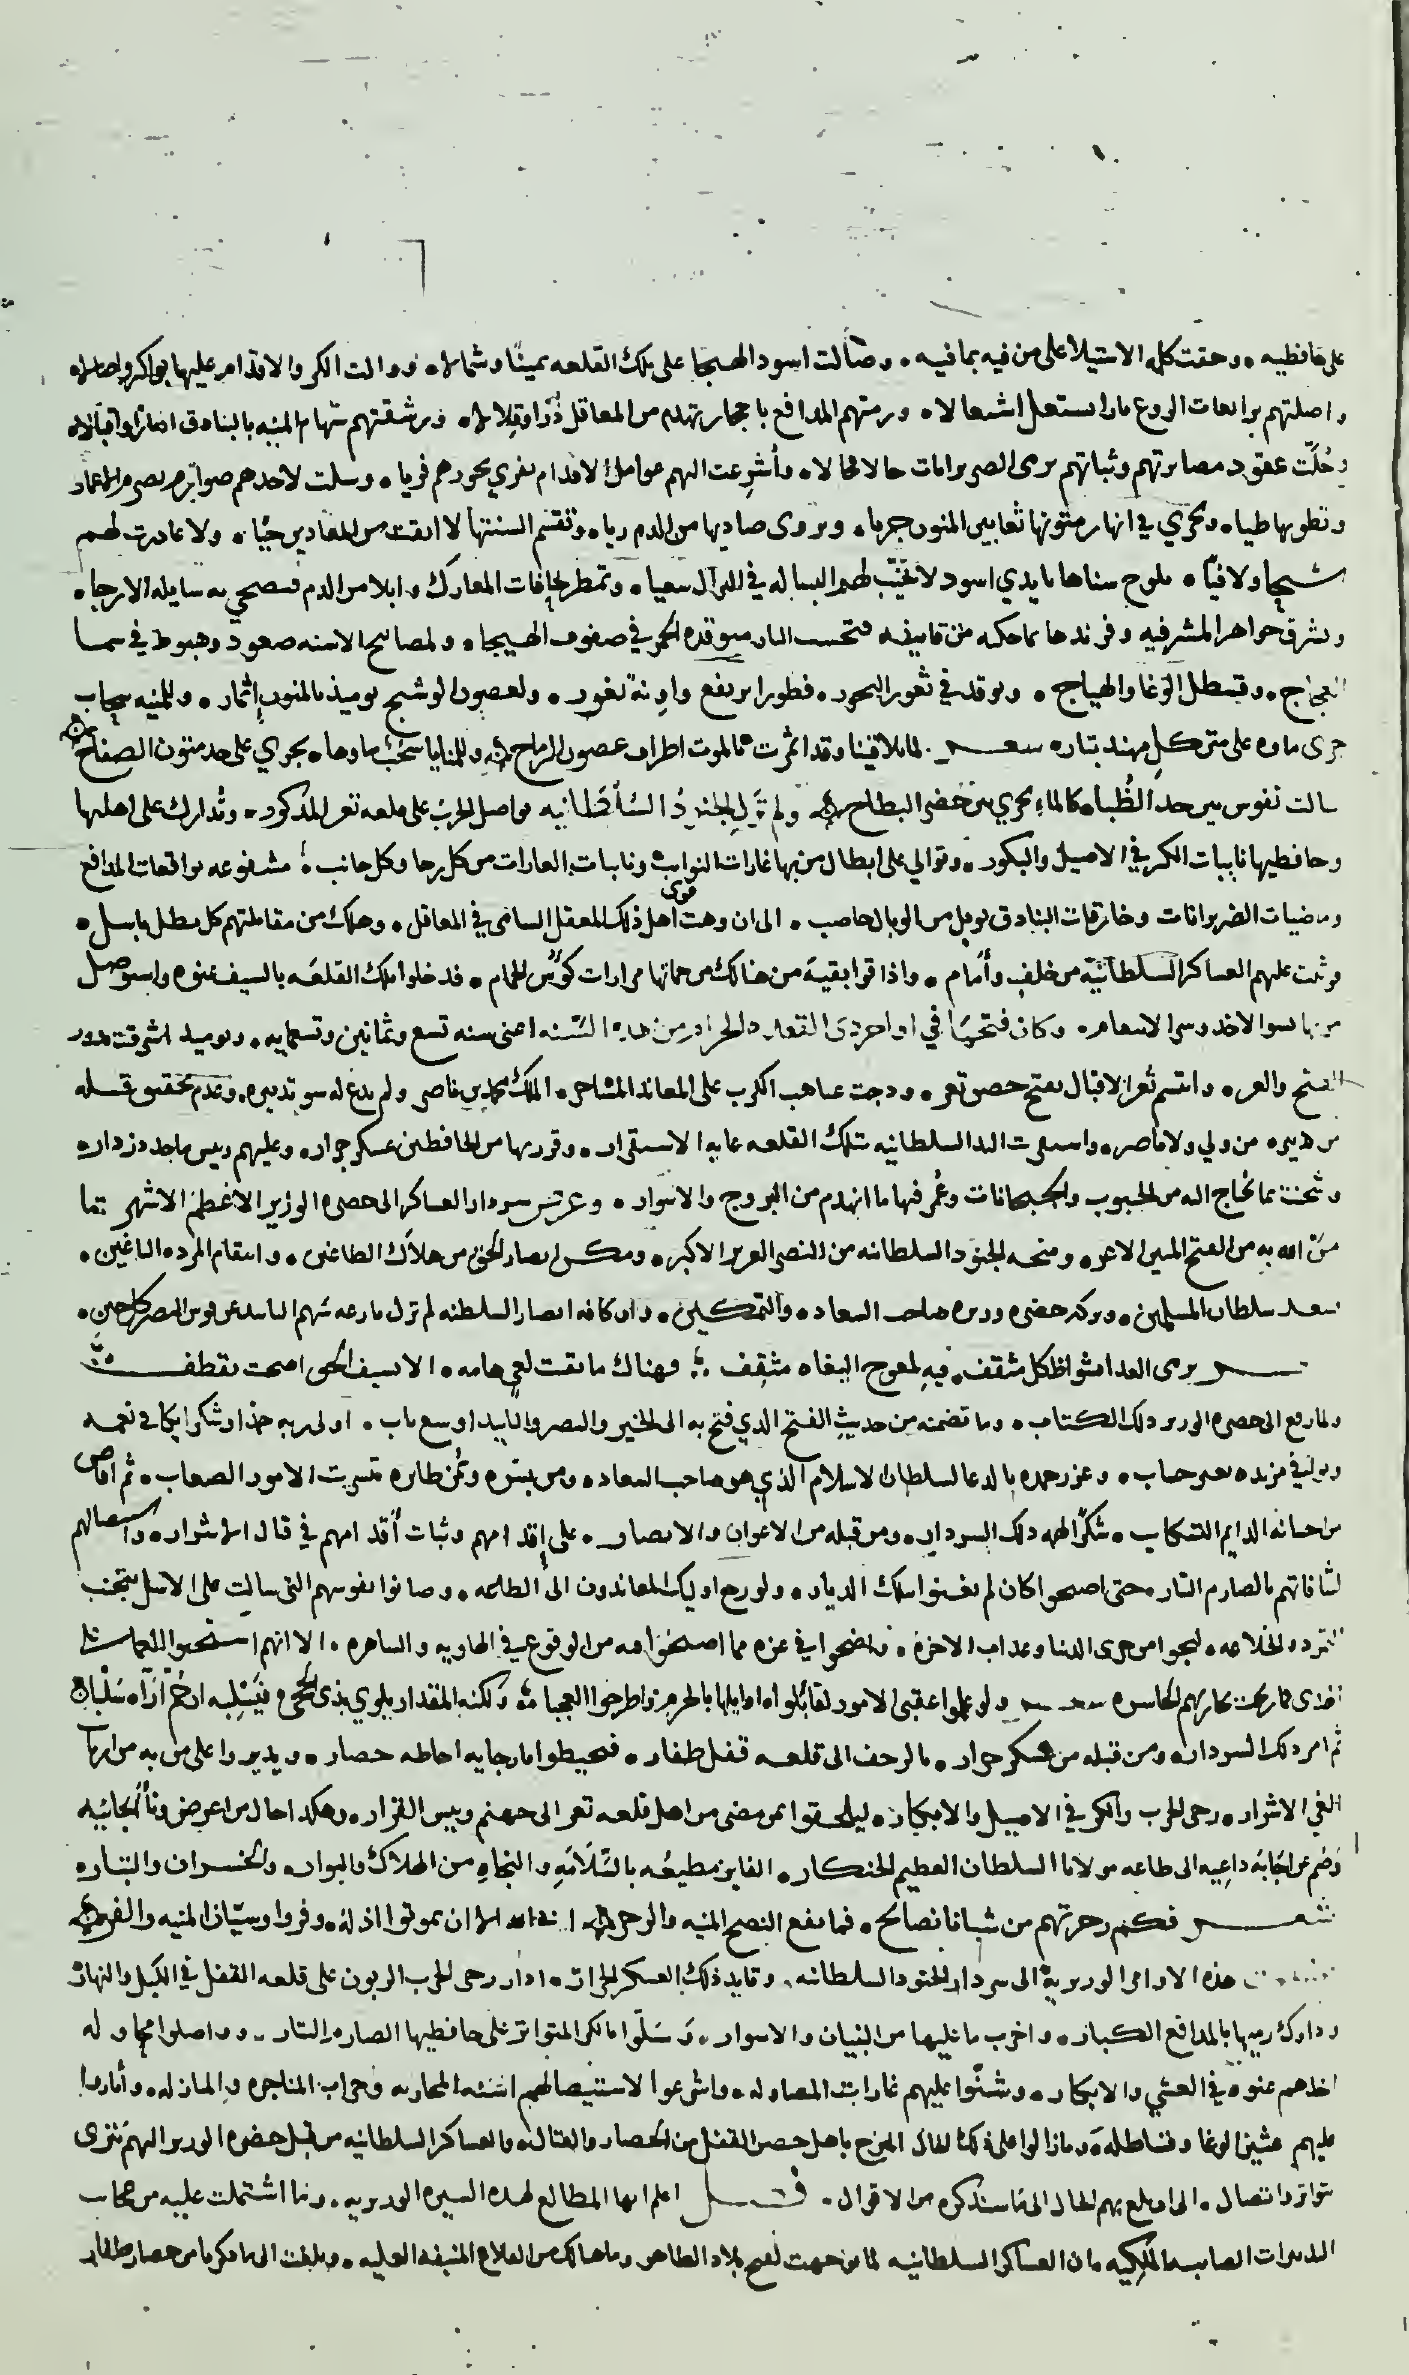 على حافظيه ٥ وحقت كلمة الاستيلا على من فيه بما فيه ٥ وصالت اسود الهيجا على تلك القلعه يمينًا وشمالا ٥ ووالت الكر والاقدام عليها بواكر واصالا ٥
واصلتهم برايعات الروع نارا تستعل اشتعالا ٥ ورمتهم المدافع باحجار يتهدم من المعاقل ذُرًا وقلالا ٥ ورشقتهم سهام المنيه بالبنادق
وحُلّت عقود مصابرتهم وثباتهم برمى الضربزانات حالا فحالا ٥ وأُشرعت اليهم عوامل الاقدام تفري نحورهم فريا ٥ وسلت لاخذهم صوارم
وتطويها طيا ٥ وتجري في انهار متونها ثعابين المنون جريا ٥ وتروى صاديها من الدم ريا ٥ وتقسم السنتها لا ابقت من المعادين حيًّا ٥ ولا غادرت لهم
شيخا ولا فتيًّا ٥ يلوح سناها بايدي اسود لا تخيّب لهم البساله في النزال سعيا ٥ وتمطر بحافات المعارك وابلا من الدم فتصحى به سايلة الارجا ٥
وتشرق جواهر المشرفيه وفرندها ضاحكه من قايضه فتحسب النار موقدة الجمر في صفوف الهيجا ٥ ولمصابيح الاسنه صعود وهبوط في سما
العجاج ٥ وقسطل الوغا والهياج ٥ وتوقد في ثغور النحور ٥ فطورا ترتفع واونة تغور ٥ ولغصون الوشيج يوميذ بالمنون إثمار ٥ وللمنيه سحاب
جرى ماوه على متن كل مهند بتار ٥ شعر ٠ لما تلاقينا وقد اثمرت بالموت اطراف غصون الرماح وللمنايا سحب ماوها ٥ يجري على حد متون الصفاح
سالت نفوس بين حد الظُبا ٥ كالماء يجري بين خضر البطاح ولم تزل الجنود السلطانيه تواصل الحرب على قلعه تعز المذكور ٥ وتدارك على اهلها
وحافظيها نايبات الكر في الاصيل والبكور ٥ وتوالي على ابطال من بها غارات النوايب ٥ ونايبات الغارات من كل رجا وكل جانب ؛ مشفوعه بواقعات المدافع
وماضيات الضربزانات وخارقات البنادق بوبل من الوبال حاصب ٥ الى ان وهت قوى اهل ذلك المعقل السامى في المعاقل ٥ وهلك من مقاتلتهم كل بطل باسل ٥
وثبت عليهم العساكر السلطانيّة من خلف وأمام ٥ واذاقوا بقية من هنالك من حماتها مرارات كؤس الحمام ٥ فدخلوا تلك القلعه بالسيف عنوه واستوصل
من بها بسوا الاخذ وسر الانتقام ٥ وكان فتحها في اواخر ذى القعده الحرام من هذه السّنه اعنى سنه تسع وثمانين وتسعمايه ٥ ويوميذ اشرقت بدور
الفتح والعز ٥ وابتسم ثغر الاقبال بفتح حصن تعز ٥ ودجت غياهب الكرب على المعاند المشاحر ٥ الملك محمد بن ناصر ولم يدع له سو تدبيره وعدم تحقيق
من هذين من ولي ولا ناصر ٥ واستقرت اليد السلطانيه بتلك القلعه غاية الاستقرار ٥ وقرر بها من الحافظين عسكر جرار ٥ وعليهم ريس ماجد ودزدار ٥
وشحنت بما يحتاج اليه من الحبوب والجبخانات وعُمر فيها ما انهدم من البروج والاسوار ٥ وعرض سردار العساكر الى حضرة الوزير الاعظم الاشهر بما
منّ الله به من الفتح المبين الاعز ٥ ومنحه الجنود السلطانيه من النصر العزيز الاكبر ٥ ومكن انصار الحق من هلاك الطاغين ٥ وانتقام المرده الباغين ٥
بسعد سلطان المسلمين ٥ وبركه حضره وزيره صاحب السعاده والتمكين ٥ وان كافه انصار السلطنه لم تزل بارعه سهم النايبه عن قوس النصر كل حين ٥
شعر يرمى العدا بشواظ كل مثقف ٥ فيه لمعوج البغاه مثقف فهناك ما بقيت لغى هامه ٥ الا بسيف الحق اصبحت تقطف
ولما رفع الى حضرة الوزير ذلك الكتاب ٥ وما تضمنه من حديث الفتح الذي فتح به الى الخير والنصر والتاييد اوسع باب ٥ اولى ربه حمدا وشكرا يكافى نعمه
ويوافي مزيده بغير حساب ٥ وعزز حمده بالدعا لسلطان الاسلام الذي هو صاحب السعاده ومن بيمنه ويُمن طايره تيسرت الامور الصعاب ٥ ثم افاض
من احسانه الدايم التسكاب ٥ شكرا لهمه ذلك السردار ٥ ومن قبله من الاعوان والانصار ٥ على إقدامهم وثبات أقدامهم في قتال الاشرار ٥ واستيصالهم
لشافاتهم بالصارم البتار ٥ حتى اصبحوا كان لم يغنوا بتلك الديار ٥ ولو رجع اوليك المعاندون الى الطاعه ٥ وصانوا نفوسهم التى سالت على الاسل بتجنب
التمرد والخلاعه ٥ لنجوا من خزى الدنيا وعذاب الاخره ٥ واضحوا في عزه مما اصبحوا فيه من الوقوع في الهاويه والساهره ٥ الا انهم استحبوا العمى على
الهدى فما ربحت تجارتهم الخاسره شعر ولو علموا عقبى الامور لقابلوا ٥ اوايلها بالحزم واطرحوا العجبا ولكنه المقدار يلوي بذى الحجى فيسلبه ان حُمّ اراه سلبا
ثم امر ذلك السردار ٥ ومن قبله من عسكر جرار ٥ بالزحف الى قلعه قفل ظفار ٥ فيحيطوا بارجايه احاطه حصار ٥ ويديروا على من به من ارباب
الغي الاشرار ٥ رحى الحرب والكر في الاصيل والابكار ٥ ليلحقوا بمن مضى من اهل قلعه تعز الى جهنم وبيس القرار ٥ وهكذا حال من اعرض ونأى بجانبه
وصم عن اجابة داعيه الى طاعه مولانا السلطان العظيم الخنكار ٥ الفايز مطيعه بالسّلامه والنجاه من الهلاك والبوار ٥ والخسران والتبار ٥
شعر فكم زجرتهم من شبانا نصائح ٥ فما نفع النصح المنيه والزجر ان يموتوا اذلة ٥ وفروا وسيّان المنيه والفر
هذه الاوامر الوزيريه الى سردار الجنود السلطانيه ٥ وقايد ذلك العسكر الجرار ٥ ادار رحى الحرب الزبون على قلعه القفل في الليل والنهار
ودارك رميها بالمدافع الكبار ٥ واخرب ما يليها من البنيان والاسوار ٥ وسلّوا بالكر المتواتر على حافظيها الصارم البتار ٥ وواصلوا محاوله
اخذهم عنوة في العشي والابكار ٥ وشنّوا عليهم غارات المصاوله ٥ واشرعوا لاستيصالهم اسنّه المحاربه وحراب المناجزه والمنازله ٥ وأثاروا
عليهم عثير الوغا وقساطله ٥ وما زالوا على ذلك الحال المزعج باهل حصن القفل من الحصار والقتال ٥ والعساكر السلطانيه من قبل حضره الوزير اليهم تترى
بتواتر واتصال ٥ الى ان بلغ بهم الحال الى ما سنذكره من الاقوال ٥ فصل اعلم ايها المطالع لهذه السيره الوزيريه ٥ وما اشتملت عليه من عجايب
التدبيرات الصايبه الملكيه بان العساكر السلطانيه لما توجهت لفتح بلاد الظاهر وما هنالك من القلاع المنيفة العليه ٥ وبلغت الى ما ذكرنا من حصار ظفار